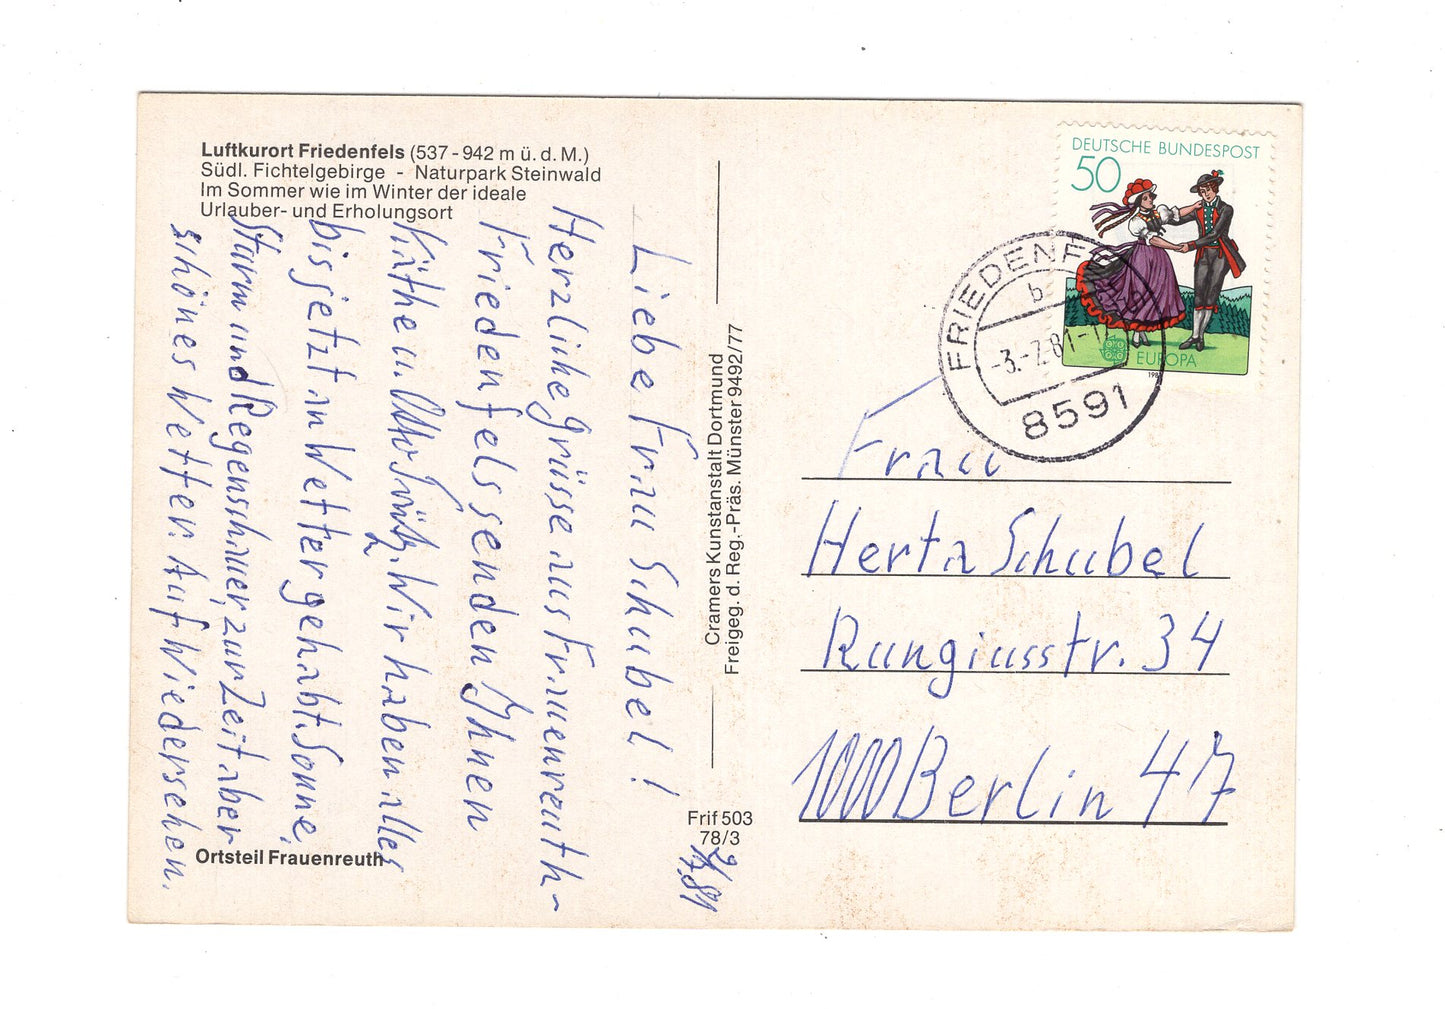 Luftkurort Friedenfels (537-942 m ü. d. M.)
Südl. Fichtelgebirge - Naturpark Steinwald
Im Sommer wie im Winter der ideale
Urlauber- und Erholungsort
Liebe Frau Schubel!
Herzliche Grüsse aus Frauenreuth-
Friedenfels senden Ihnen
Käthe u. Otto Wir haben alles
bis jetzt an Wetter gehabt. Sonne,
Sturm und Regenschauer, zur Zeit aber
schönes Wetter. Auf Wiedersehen.
Ortsteil Frauenreuth
Cramers Kunstanstalt Dortmund
Freigeg. d. Reg.-Präs. Münster 9492/77
Frif 503
78/3
DEUTSCHE BUNDESPOST
50
EUROPA
FRIEDENF
b
-3.-7.81-
8591
Frau
Herta Schubel
Rungiusstr. 34
1000 Berlin 47